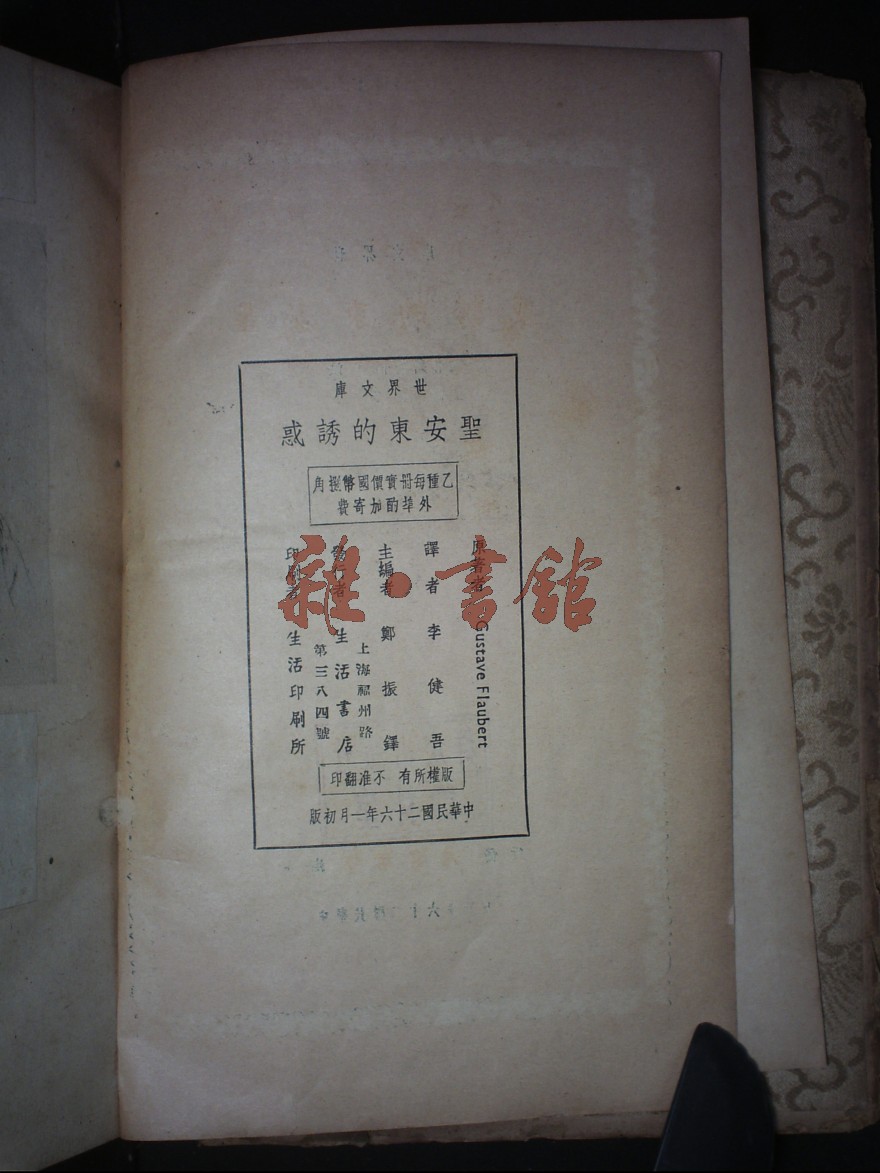 世界文庫
聖安東的誘惑
乙種每冊實價國幣捌角
外埠酌加寄費
原著者 Gustave Flaubert
譯者 李健吾
主編者 鄭振鐸
上海福州路
發行者 生活書店
第三八四號
印刷者 生活印刷所
版權所有 不准翻印
中華民國二十六年一月初版
雜·書館